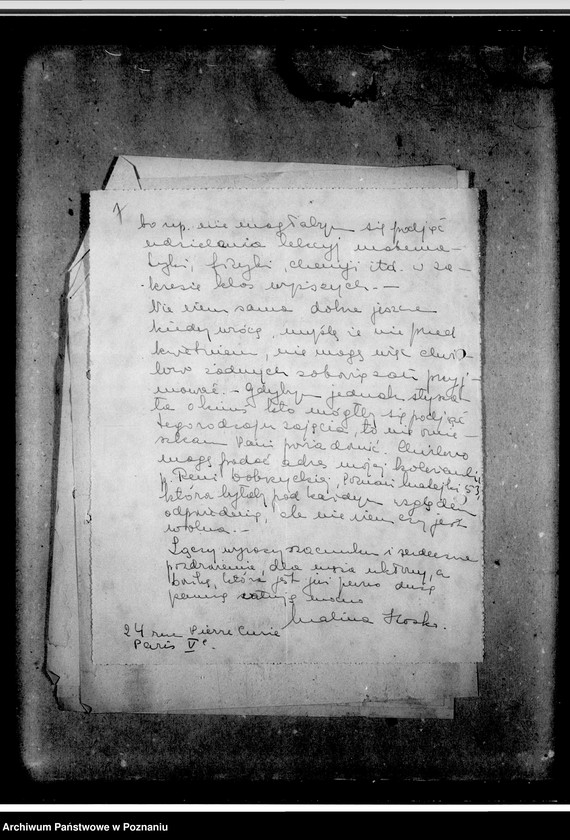 bo np. nie mogłabym się podjąć
udzielania lekcyj matema-
tyki, fizyki, chemji itd. w za-
kresie klas wyższych. —
Nie wiem sama dobrze jeszcze
kiedy wrócę, myślę że nie przed
kwietniem, nie mogę więc chwi-
lowo żadnych zobowiązań przyj-
mować. - Gdybym jednak słysza-
ła o kimś kto mógłby się podjąć
tego rodzaju zajęcia, to nie omie-
szkam Pani powiadomić. Chwilowo
mogę podać adres mojej koleżanki
p. Reni Dobrzyckiej, Poznań, 53,
która byłaby pod każdym względem
odpowiednią, ale nie wiem czy jest
wolna. —
Łączę wyrazy szacunku i serdeczne
pozdrowienia, dla męża ukłony, a
która jest już pewno dużą
panną całuję mocno
Halina
24 rue Pierre Curie
Paris Ve.
Archiwum Państwowe w Poznaniu